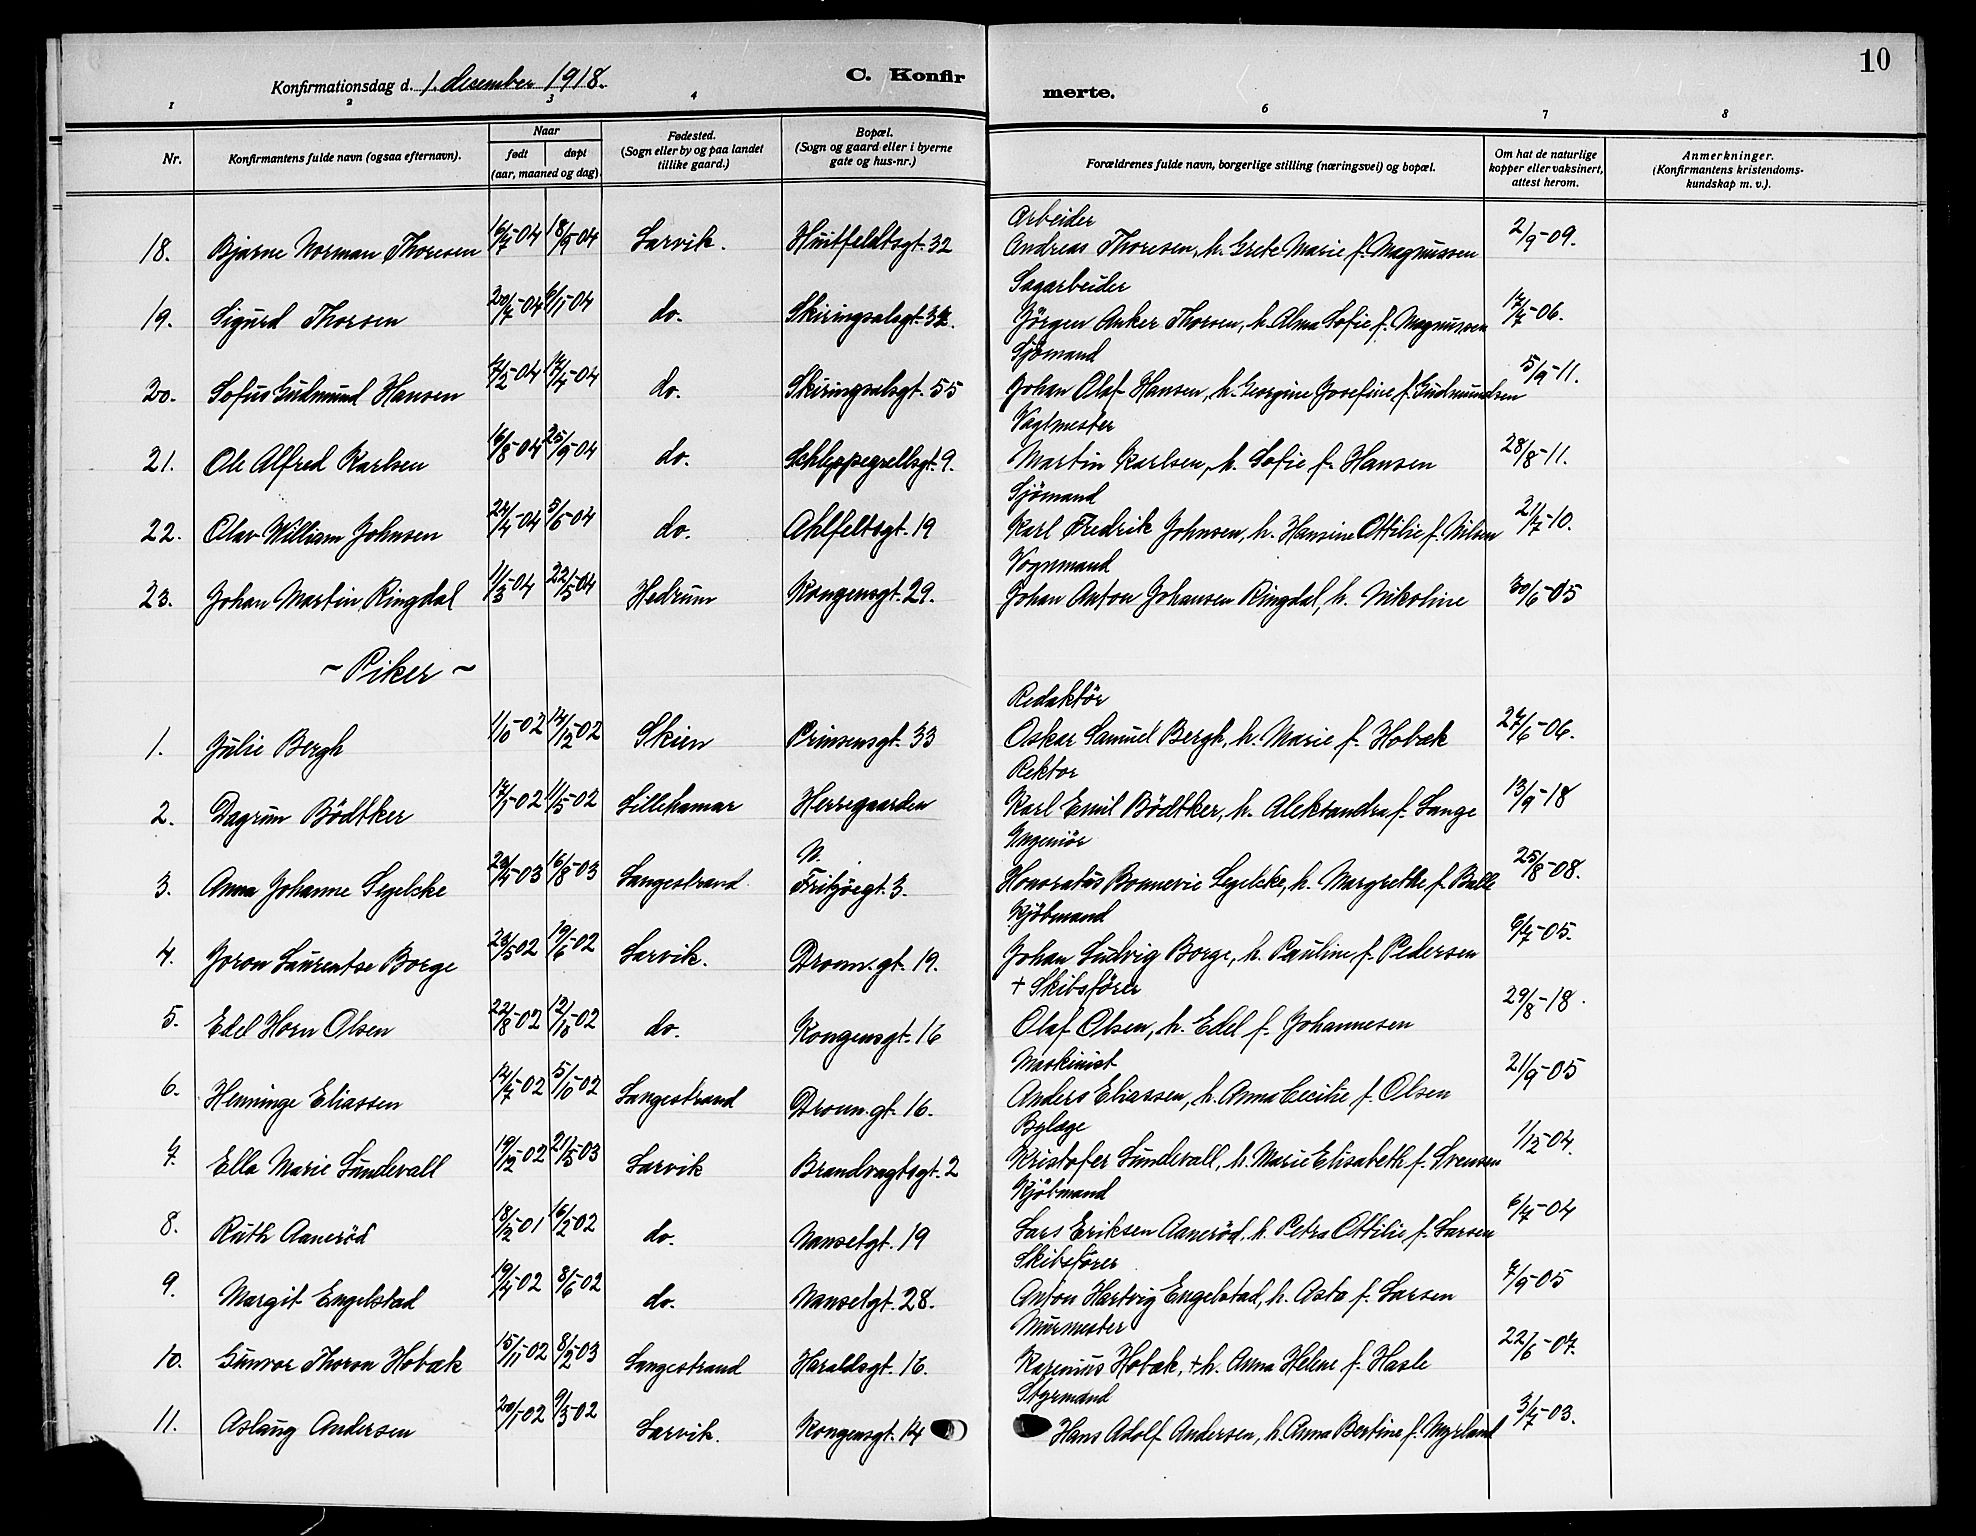 10
Konfirmationsdag d. 1. desember 1918. C. Konfirmerte.
1 2 3 4 6 7 8
Nr. Konfirmantens fulde navn (ogsaa efternavn). Naar født døpt (aar, maaned og dag). Fødested. (Sogn eller by og paa landet tillike gaard.) Bopæl. (Sogn og gaard eller i byerne gate og hus-nr.) Forældrenes fulde navn, borgerlige stilling (næringsvei) og bopæl. Om hat de naturlige kopper eller vaksinert, attest herom. Anmerkninger. (Konfirmantens kristendomskundskap m. v.).
Arbeider
18. Bjarne Norman Thoresen 16/7-04 18/9-04 Larvik. Huitfeldtsgt. 32 Andreas Thoresen, h. Grete Marie f. Magnussen 2/9-09.
Sagarbeider
19. Sigurd Thorsen 20/7-04 6/11-04 do. Skiringsalsgt. 32. Jörgen Anker Thorsen, h. Alma Sofie f. Magnussen 17/7-06.
Sjömand
20. Sofus Gudmund Hansen 7/2-04 17/4-04 do. Skiringsalsgt. 55 Johan Olaf Hansen, h. Georgine Josefine f. Gudmundsen 5/9-11.
Vagtmester
21. Ole Alfred Karlsen 16/8-04 25/9-04 do. Schleppegrellsgt. 9. Martin Karlsen, h. Sofie f. Hansen 28/8-11.
Sjömand
22. Olav William Johnsen 24/4-04 5/6-04 do. Ahlfeltsgt. 19 Karl Fredrik Johnsen, h. Hansine Ottilie f. Nilsen 21/7-10.
Vognmand
23. Johan Martin Ringdal 11/3-04 22/5-04 Hedrum Kongensgt. 29. Johan Anton Johansen Ringdal, h. Nikoline 30/6-05
~ Piker ~
Redaktör
1. Julie Bergh 1/10-02 14/12-02 Skien Prinsensgt. 33 Oskar Samuel Bergh, h. Marie f. Hobæk 27/6-06.
Rektor
2. Dagrun Bödtker 17/1-02 11/5-02 Lillehamar Herregaarden Karl Emil Bödtker, h. Aleksandra f. Lange 13/9-18
Ingeniör
3. Anna Johanne Segelcke 23/4-03 16/8-03 Langestrand. N. Fritzöegt. 3. Honoratus Bonnevie Segelcke, h. Margrethe f. Balle 25/8-08.
Kjöbmand
4. Joron Laurentse Borge 23/5-02 19/6-02 Larvik. Dronn. gt. 19. Johan Ludvig Borge, h. Pauline f. Pedersen 6/7-05.
+ Skibsförer
5. Edel Horn Olsen 22/8-02 12/10-02 do. Kongensgt. 16 Olaf Olsen, h. Edel f. Johannesen 29/8-18.
Maskinist
6. Henninge Eliassen 14/7-02 5/10-02 Langestrand Dronn. gt. 16. Anders Eliassen, h. Anna Cecilie f. Olsen 21/9-05
Bylæge
7. Ella Marie Sundevall 19/12-02 21/5-03 Larvik Brandvagtsgt. 2 Kristofer Sundevall, h. Marie Elisabeth f. Svensen 1/12-04.
Kjöbmand
8. Ruth Aaneröd 18/2-01 16/2-02 do. Nansetgt. 19 Lars Eriksen Aaneröd, h. Petra Ottilie f. Larsen 6/7-04
Skibsförer
9. Margit Engelstad 19/4-02 8/6-02 do. Nansetgt. 28. Anton Hartvig Engelstad, h. Asta f. Larsen 7/9-05
Murmester
10. Gunvor Thoron Hobæk 15/11-02 8/2-03 Langestrand Haraldsgt. 16. Rasmus Hobæk, + h. Anna Helene f. Hasle 22/6-07.
Styrmand
11. Aslaug Andersen 20/1-02 9/3-02 Larvik. Kongensgt. 14 Hans Adolf Andersen, h. Anna Bertine f. Myrland 3/7-03.